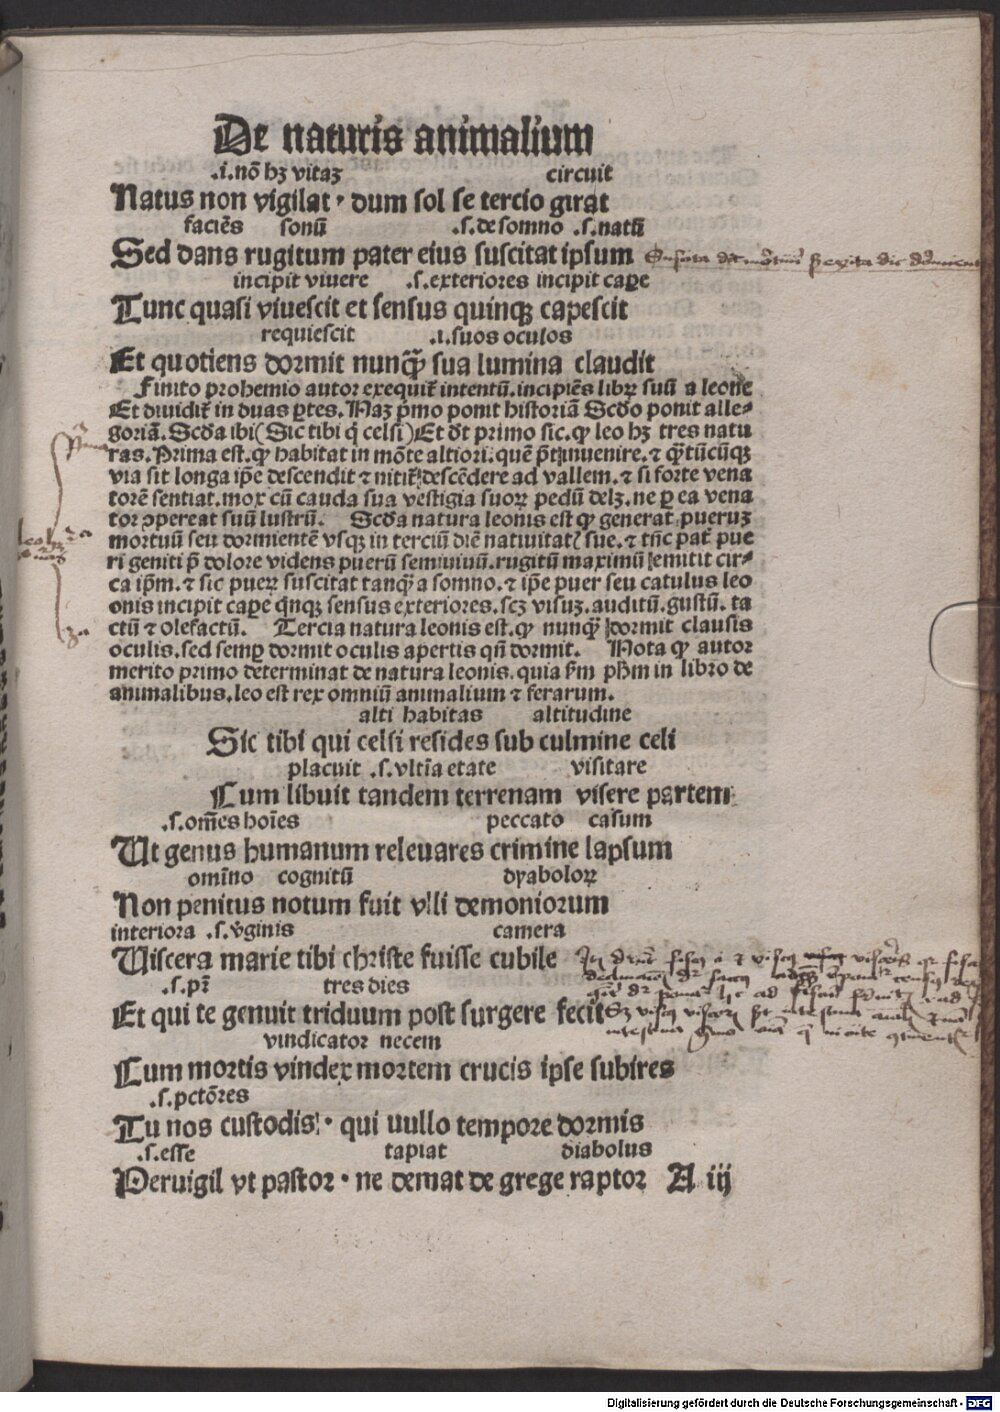 De naturis animalium
.i. nō hꝫ vitaꝫ circuit
Natus non vigilat · dum sol se tercio girat
faciēs sonū .s. de somno .s. natū
Sed dans rugitum pater eius suscitat ipsum
incipit viuere .s. exteriores incipit caꝑe
Tunc quasi viuescit et sensus quinqꝫ capescit
requiescit .i. suos oculos
Et quotiens dormit nunqȝ̄ sua lumina claudit
Finito prohemio autor exequit᷑ intentū. incipiēs libꝝ suū a leone
Et diuidit᷑ in duas ꝑtes. Naꝫ p̄mo ponit historiā Scďo ponit alle-
goriā. Scďa ibi (Sic tibi q̇ celsi) Et dt̄ primo sic. ꝙ leo hꝫ tres natu
ras. Prima est. ꝙ habitat in mōte altiori. quē p̄t inuenire. ⁊ qȝ̄tūcūqꝫ
via sit longa ip̄e descendit ⁊ nitit᷑ descēdere ad vallem. ⁊ si forte vena
torē sentiat. mox cū cauda sua vestigia suoꝝ pedū delꝫ. ne ꝑ ea vena
tor ꝯpereat suū lustrū. Scďa natura leonis est ꝙ generat pueruꝫ
mortuū seu dormientē vsqꝫ in terciū diē natiuitatꝭ sue. ⁊ tūc pat᷑ pue
ri geniti p̄ dolore videns puerū semiuiuū. rugitū maximū emitit cir-
ca ip̄m. ⁊ sic pueꝝ suscitat tanqȝ̄ a somno. ⁊ ip̄e puer seu catulus leo
onis incipit caꝑe q̇nqꝫ sensus exteriores. scꝫ visuꝫ. auditū. gustū. ta
ctū ⁊ olefactū. Tercia natura leonis est. ꝙ nunqȝ̄ dormit clausis
oculis. sed semꝑ dormit oculis apertis qn̄ dormit. Nota ꝙ autor
merito primo determinat de natura leonis. quia ẜm pħm in libro de
animalibus. leo est rex omniū animalium ⁊ ferarum.
alti habitas altitudine
Sic tibi qui celsi resides sub culmine celi
placuit .s. vltīa etate visitare
Cum libuit tandem terrenam visere partem
.s. om̄es hoīes peccato casum
Ut genus humanum releuares crimine lapsum
omīno cognitū dyaboloꝝ
Non penitus notum fuit vlli demoniorum
interiora .s. v̄ginis camera
Uiscera marie tibi christe fuisse cubile
.s. pr̄ tres dies
Et qui te genuit triduum post surgere fecit
vindicator necem
Cum mortis vindex mortem crucis ipse subires
.s. pctōres
Tu nos custodis · qui uullo tempore dormis
.s. esse tapiat diabolus
Peruigil vt pastor · ne demat de grege raptor A iij
Digitalisierung gefördert durch die Deutsche Forschungsgemeinschaft - DFG